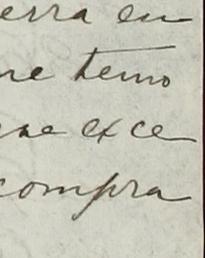 erra en
ne temo
ue exce
compra